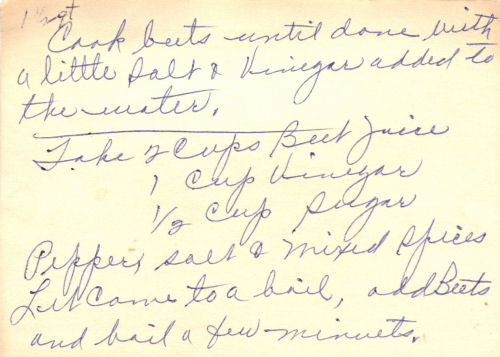 1st
Cook beets until done with
a little salt & Vinegar added to
the water.
Take 2 Cups Beet juice
1 Cup Vinegar
1/2 Cup Sugar
Pepper, salt & mixed spices
Let Come to a boil, add Beets
and boil a few minuets.